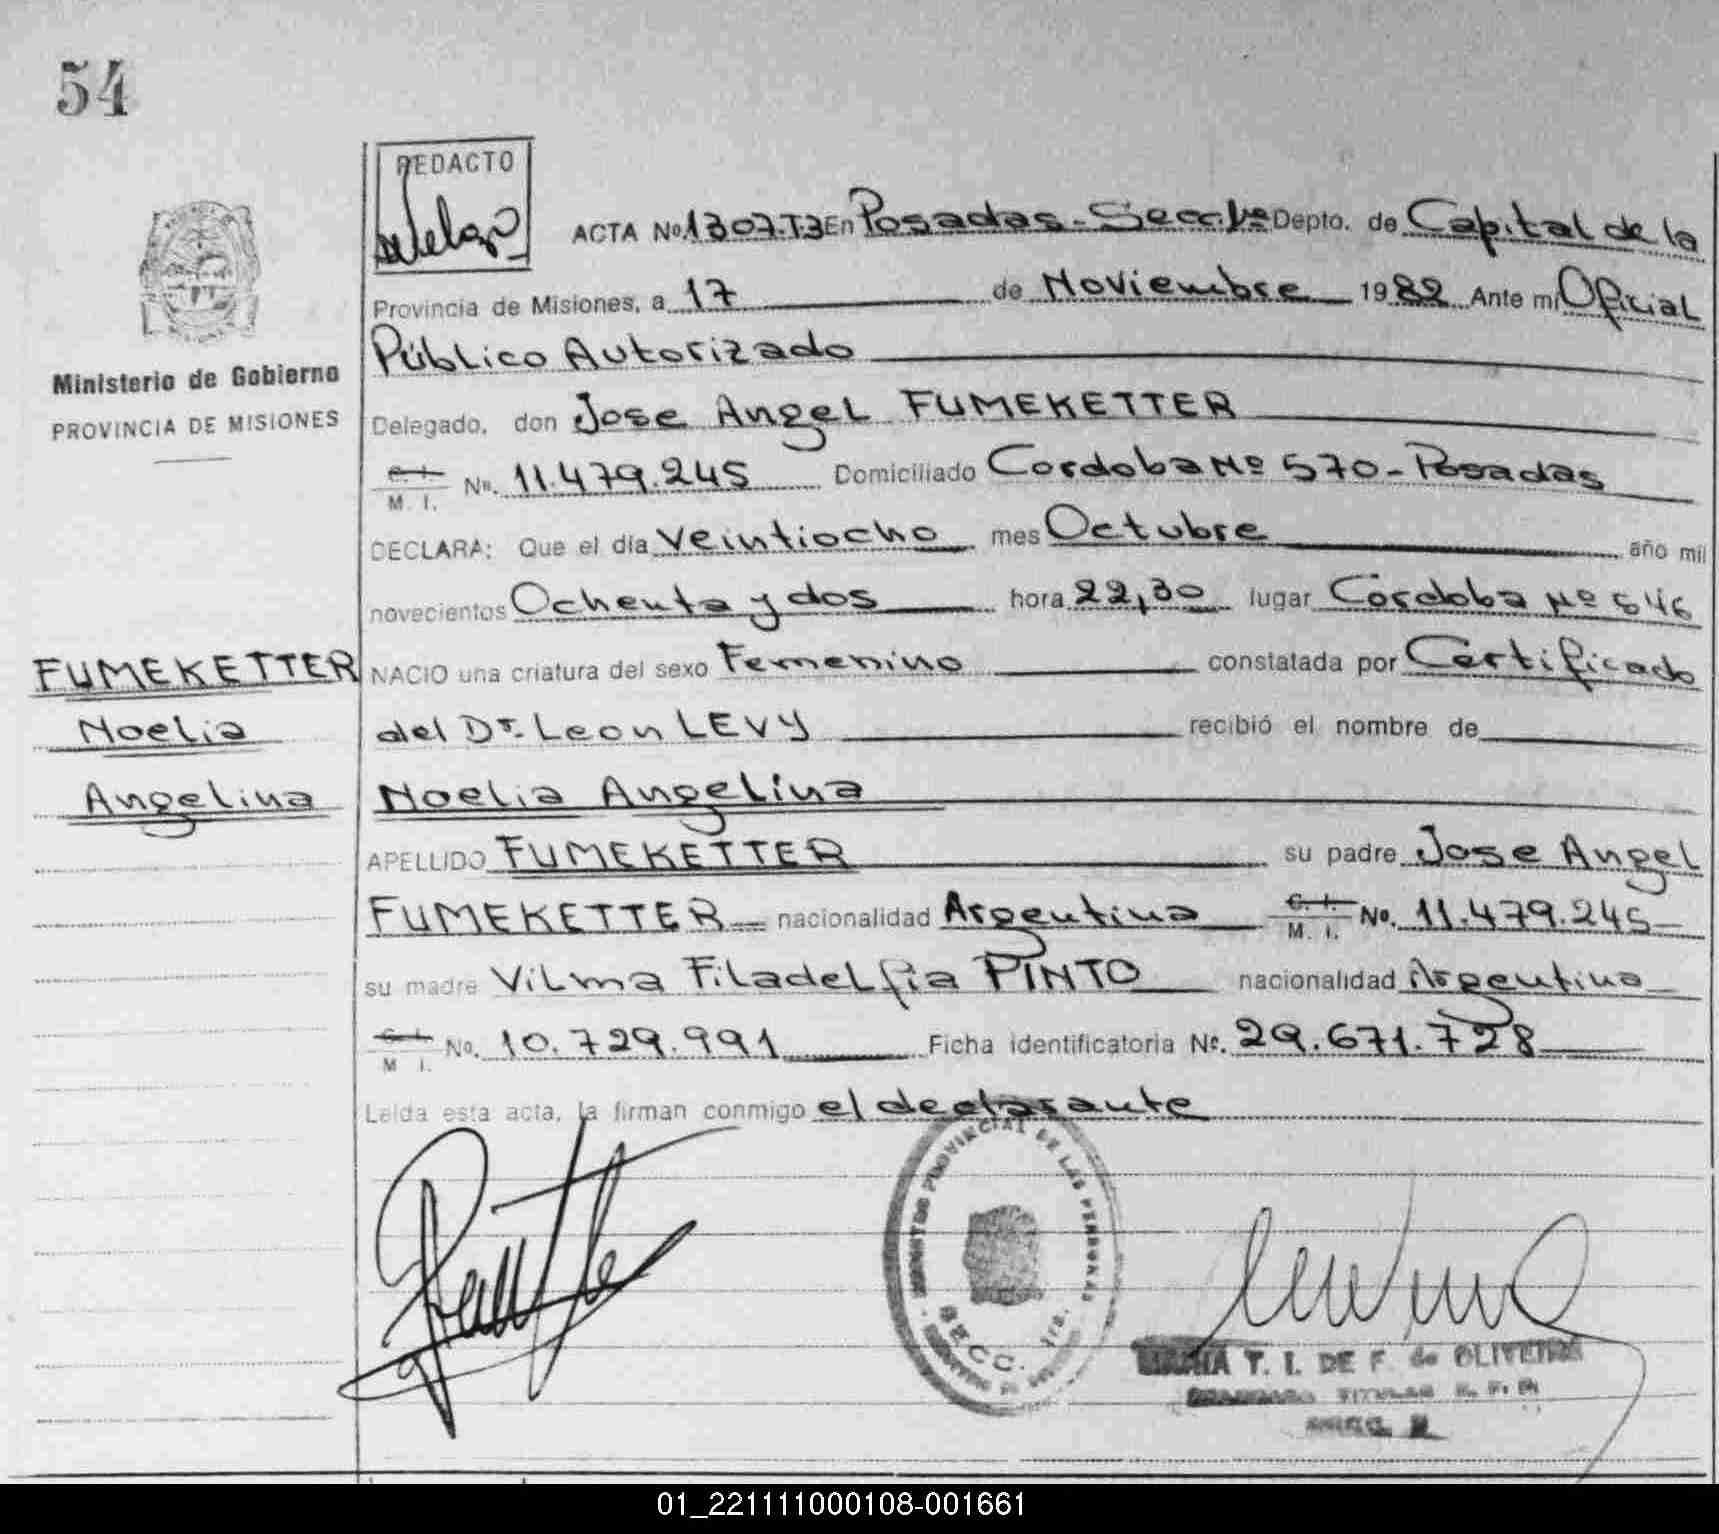 54
REDACTO
ACTA No. 1307.T3 En Posadas - Secc. 1ª Depto. de Capital de la
Provincia de Misiones, a 17 de Noviembre 1982 Ante mí Oficial
Público Autorizado
Ministerio de Gobierno
PROVINCIA DE MISIONES
Delegado, don Jose Angel FUMEKETTER
C. I. M. I. No. 11.479.245 Domiciliado Cordoba Nº 570 - Posadas
DECLARA: Que el día Veintiocho mes Octubre año mil
novecientos Ochenta y dos hora 22,30 lugar Cordoba Nº 646
FUMEKETTER
Noelia
Angelina
NACIO una criatura del sexo Femenino constatada por Certificado
del Dr. Leon LEVY recibió el nombre de
Noelia Angelina
APELLIDO FUMEKETTER su padre Jose Angel
FUMEKETTER nacionalidad Argentina C. I. M. I. No. 11.479.245
su madre Vilma Filadelfia PINTO nacionalidad Argentina
C. I. M I. No. 10.729.991 Ficha identificatoria No. 29.671.728
Leída esta acta, la firman conmigo el declarante
PROVINCIAL DE LAS PERSONAS
SECC. 1ra.
T. I. DE F. de OLIVEIRA
01_221111000108-001661